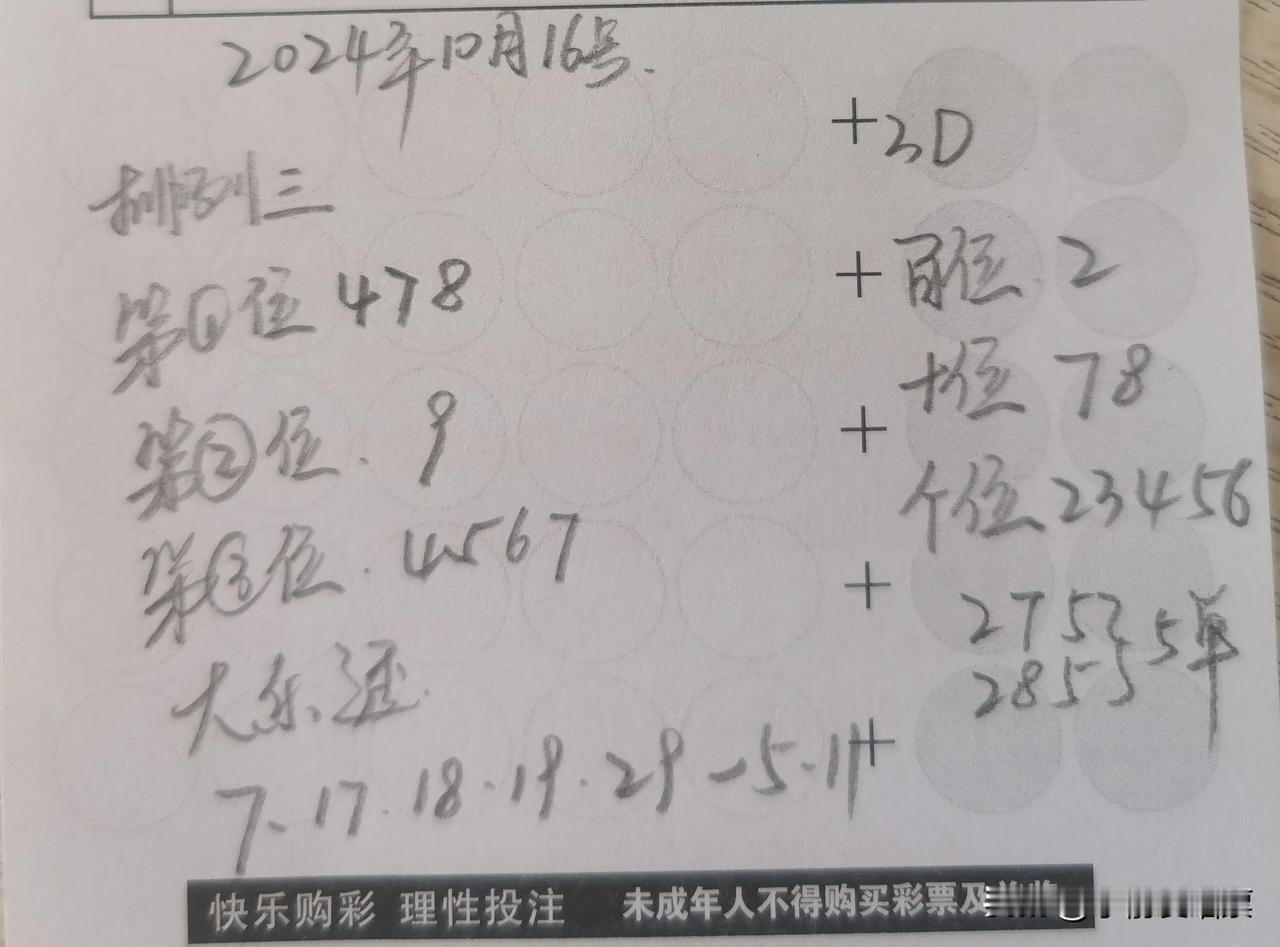 2024年10月16号.
排列三
第①位 478
第②位. 9
第③位. 4567
大乐透
7.17.18.19.29-5.11
+3D
+百位 2
十位 78
+
个位 23456
+
275
285
5单
+
快乐购彩 理性投注 未成年人不得购买彩票及